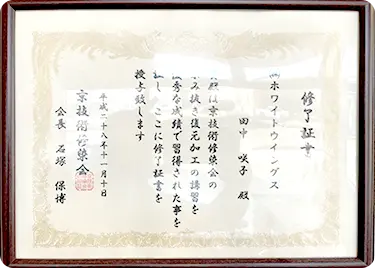 修了証書
㈲ホワイトウイングス
田中 咲子 殿
殿は京技術修染会の
み抜き復元加工の講習を
秀な成績で習得された事を
し、ここに修了証書を
授与致します
平成二十八年十一月十日
京技術修染会
会長 石塚 保博